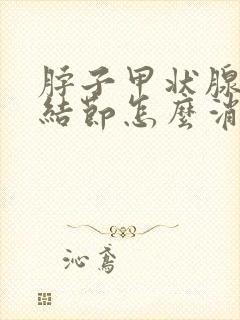 脖子甲状腺
結節怎麼消
沁鸢